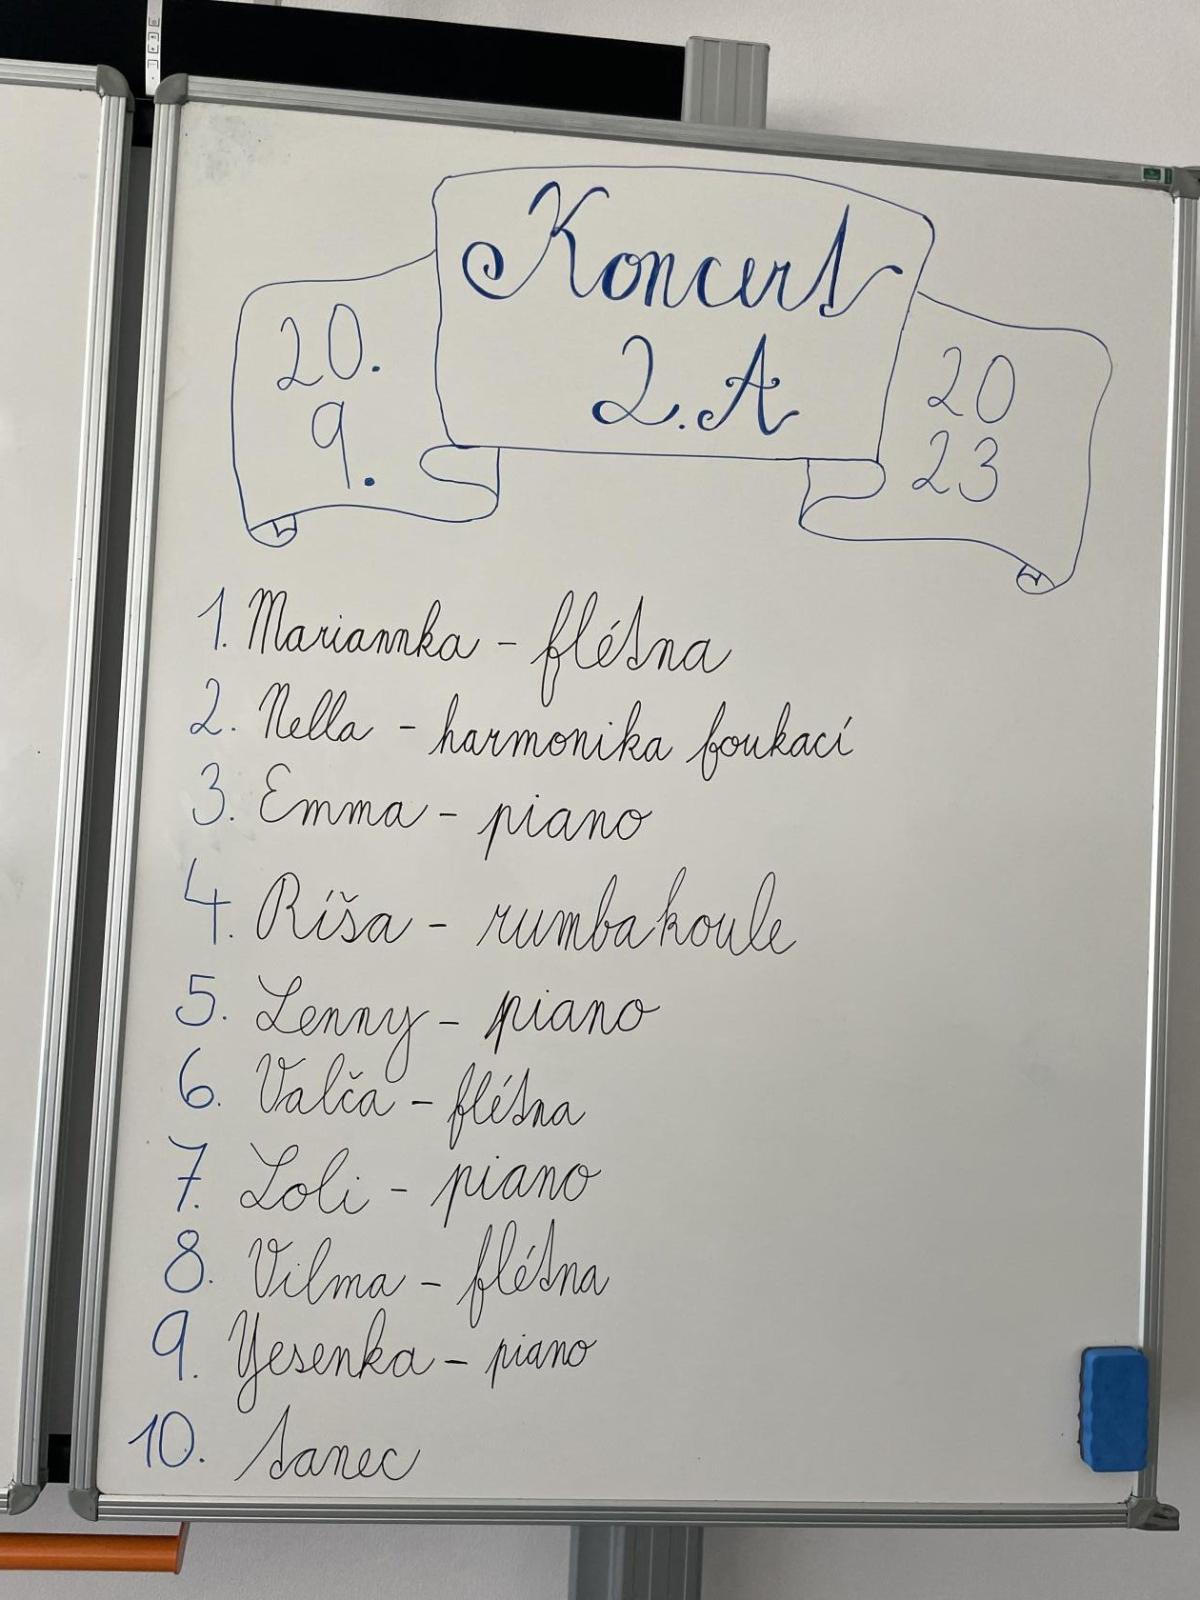 Koncert
2.A
20.
9.
20
23
1. Mariannka - flétna
2. Nella - harmonika foukací
3. Emma - piano
4. Ríša - rumbakoule
5. Lenny - piano
6. Valča - flétna
7. Loli - piano
8. Vilma - flétna
9. Yesenka - piano
10. tanec